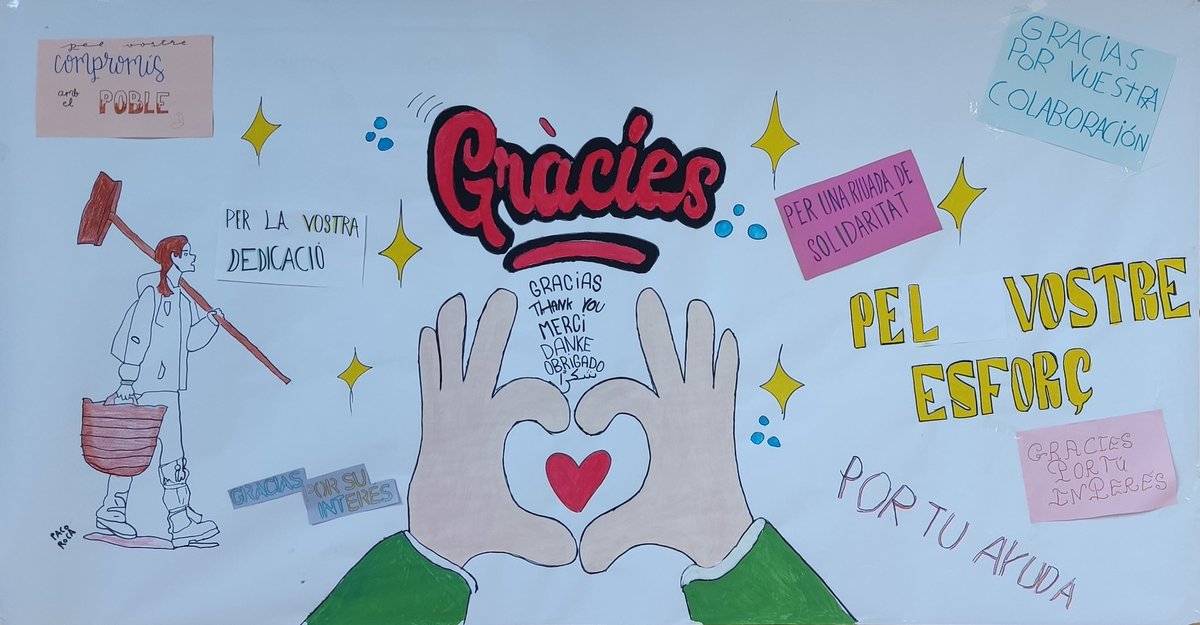 pel vostre
compromís
amb
el POBLE
PER LA VOSTRA
DEDICACIÓ
PACO
ROCA
GRACIAS
POR SU
INTERÉS
Gràcies
GRACIAS
THANK YOU
MERCI
DANKE
OBRIGADO
شكرا
PER UNA RIUADA DE
SOLIDARITAT
GRACIAS
POR VUESTRA
COLABORACIÓN
PEL VOSTRE
ESFORÇ
GRACIES
POR TU
INTERÉS
POR TU AYUDA